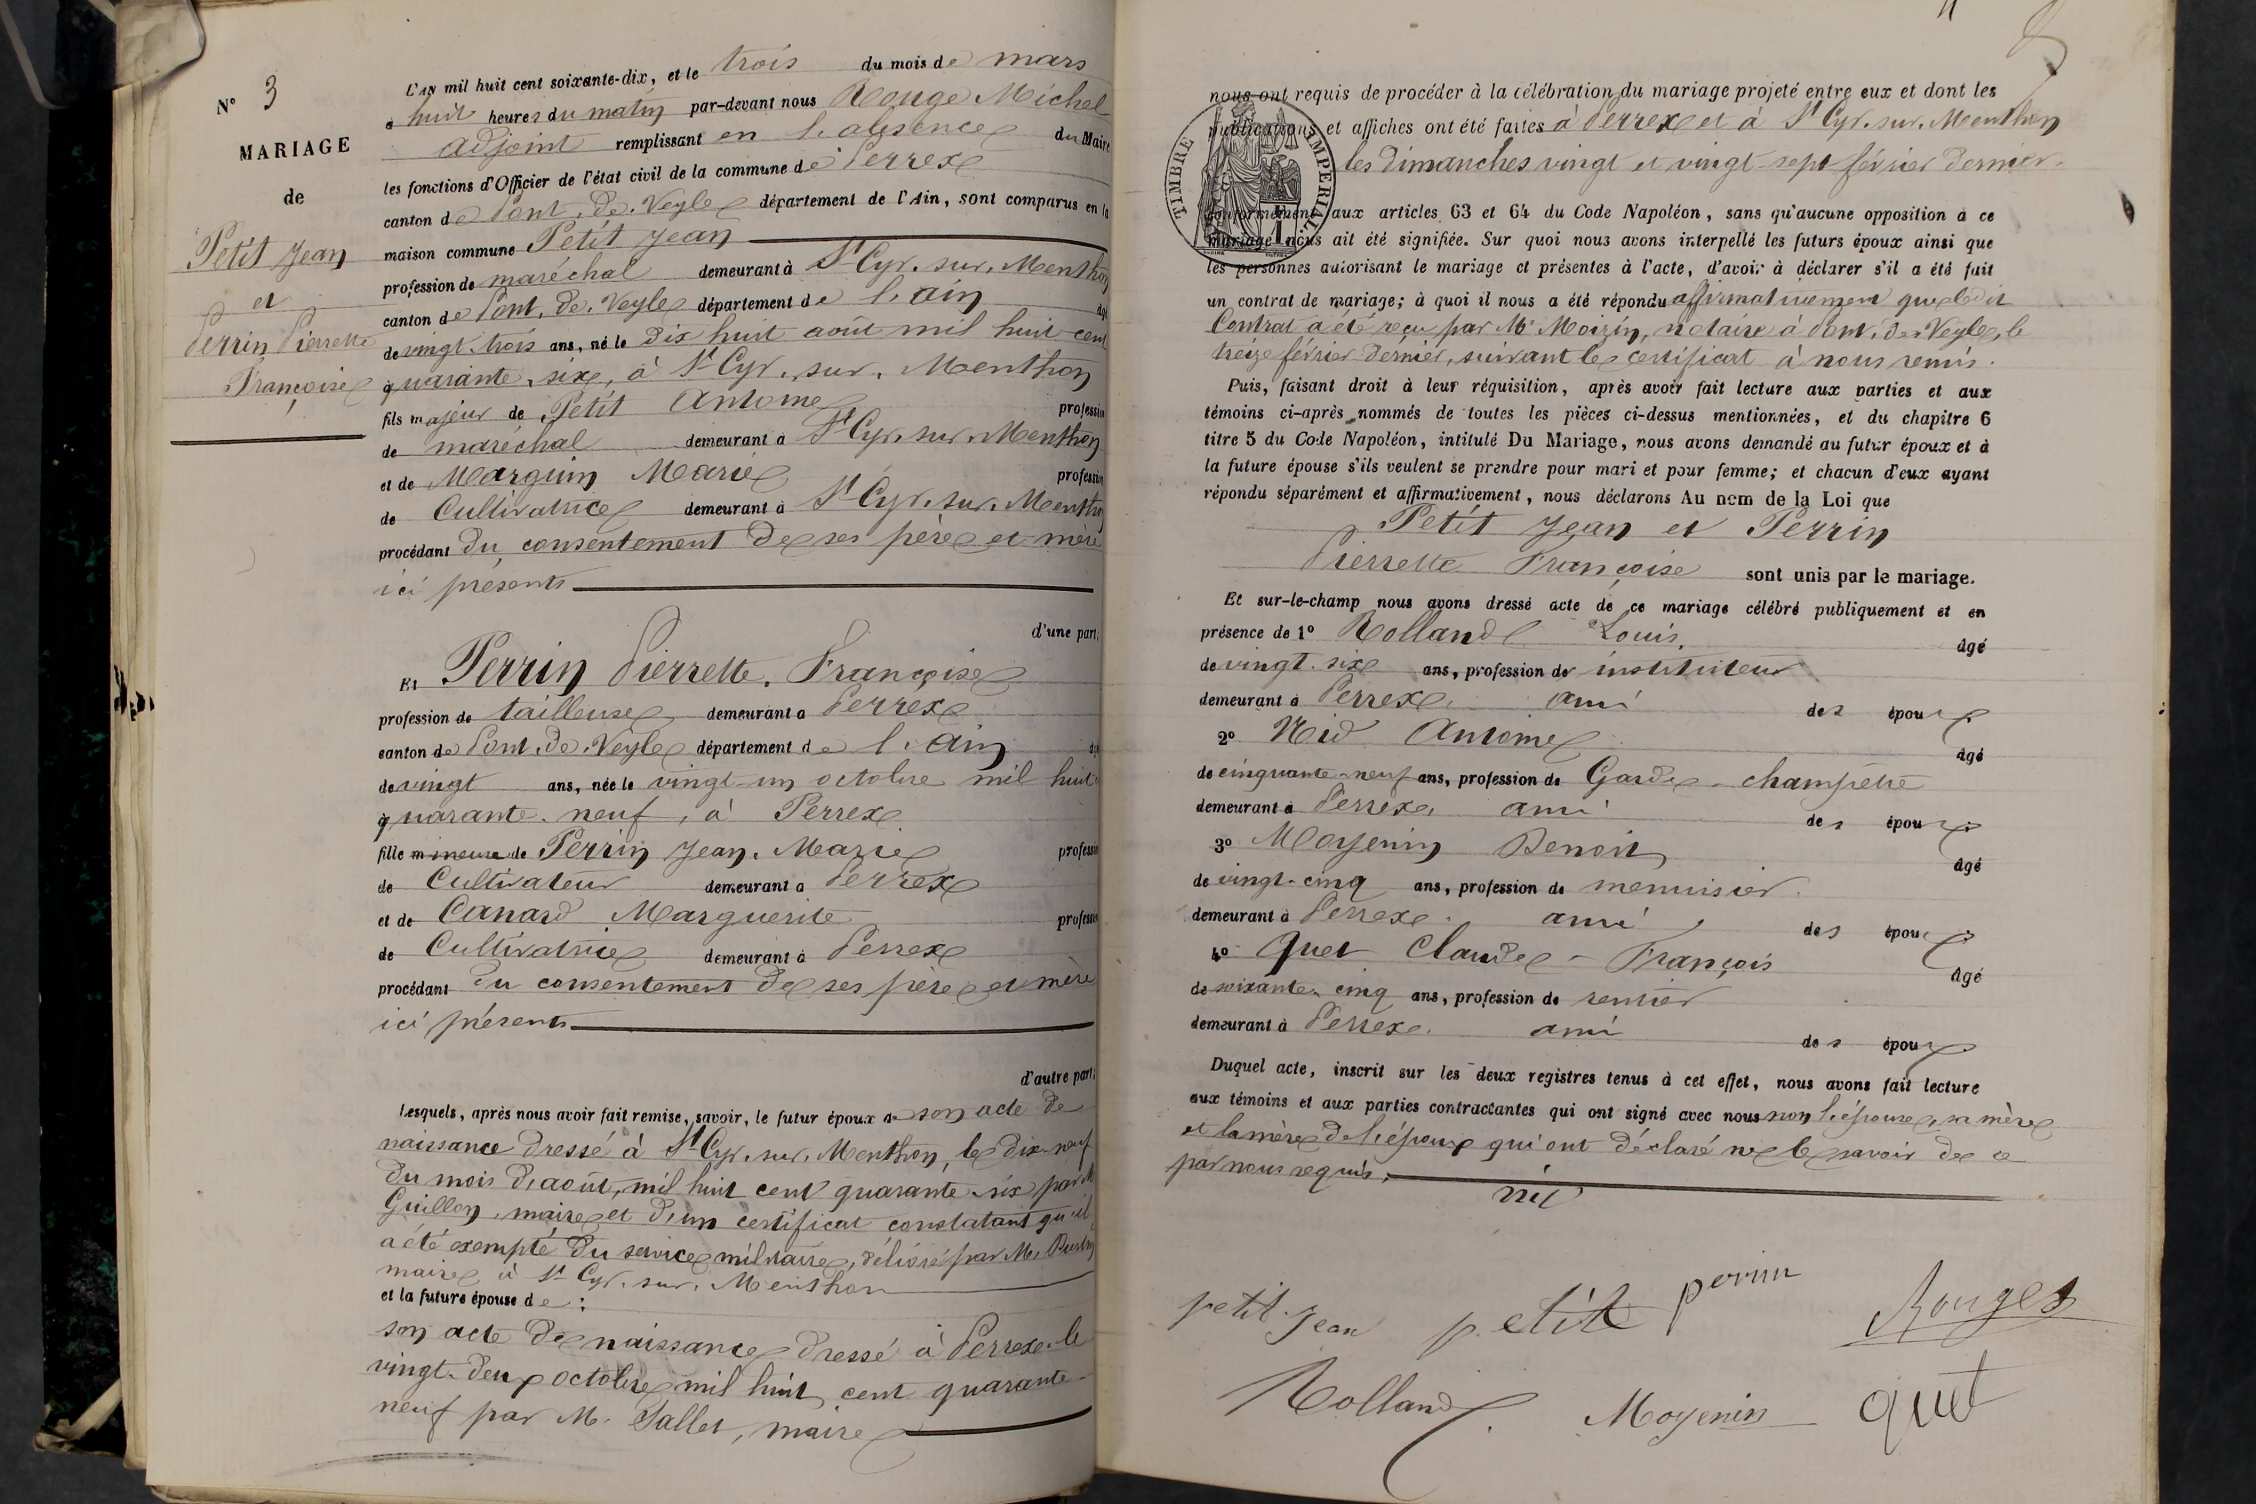 N° 3
MARIAGE
de
Petit Jean
et
Perrin Pierrette
Françoise
L'AN mil huit cent soixante-dix, et le trois du mois de mars
à huit heures du matin par-devant nous Rouge Michel
adjoint remplissant en l'absence du Maire
les fonctions d'Officier de l'état civil de la commune de Perrex
canton de Pont-de-Veyle département de l'Ain, sont comparus en la
maison commune Petit Jean
profession de maréchal demeurant à St Cyr-sur-Menthon
canton de Pont-de-Veyle département de l'ain âgé
de vingt-trois ans, né le dix huit août mil huit cent
quarante-six, à St Cyr-sur-Menthon
fils majeur de Petit Antoine profession
de maréchal demeurant à St Cyr-sur-Menthon
et de Marguin Marie profession
de Cultivatrice demeurant à St Cyr-sur-Menthon
procédant du consentement de ses père et mère
ici présents
d'une part;
Et Perrin Pierrette-Françoise
profession de tailleuse demeurant à Perrex
canton de Pont-de-Veyle département de l'ain âgé
de vingt ans, née le vingt-un octobre mil huit
quarante-neuf, à Perrex
fille mineure de Perrin Jean-Marie profession
de Cultivateur demeurant à Perrex
et de Canard Marguerite profession
de Cultivatrice demeurant à Perrex
procédant du consentement de ses père et mère
ici présents
d'autre part;
Lesquels, après nous avoir fait remise, savoir, le futur époux de son acte de
naissance dressé à St Cyr-sur-Menthon, le dix-neuf
du mois d'août, mil huit cent quarante-six par M
Guillon, maire et d'un certificat constatant qu'il
a été exempté du service militaire, délivré par M.
maire à St Cyr-sur-Menthon
et la future épouse de :
son acte de naissance dressé à Perrex le
vingt-deux octobre mil huit cent quarante-
neuf par M. Sallet, maire
nous ont requis de procéder à la célébration du mariage projeté entre eux et dont les
publications et affiches ont été faites à Perrex et à St Cyr-sur-Menthon
les dimanches vingt et vingt-sept février dernier.
TIMBRE IMPERIAL
1
conformément aux articles 63 et 64 du Code Napoléon, sans qu'aucune opposition à ce
mariage nous ait été signifiée. Sur quoi nous avons interpellé les futurs époux ainsi que
les personnes autorisant le mariage et présentes à l'acte, d'avoir à déclarer s'il a été fait
un contrat de mariage; à quoi il nous a été répondu affirmativement que ledit
Contrat a été reçu par Me Moizin, notaire à Pont-de-Veyle, le
treize février dernier, suivant le certificat à nous remis.
Puis, faisant droit à leur réquisition, après avoir fait lecture aux parties et aux
témoins ci-après nommés de toutes les pièces ci-dessus mentionnées, et du chapitre 6
titre 5 du Code Napoléon, intitulé Du Mariage, nous avons demandé au futur époux et à
la future épouse s'ils veulent se prendre pour mari et pour femme; et chacun d'eux ayant
répondu séparément et affirmativement, nous déclarons Au nom de la Loi que
Petit Jean et Perrin
Pierrette Françoise sont unis par le mariage.
Et sur-le-champ nous avons dressé acte de ce mariage célébré publiquement et en
présence de 1° Rolland Louis, âgé
de vingt-six ans, profession de instituteur
demeurant à Perrex, ami des époux
2° Nid Antoine âgé
de cinquante-neuf ans, profession de Garde-champêtre
demeurant à Perrex, ami des époux
3° Moyenin Benoit âgé
de vingt-cinq ans, profession de menuisier
demeurant à Perrex, ami des époux
4° Quet Claude-François âgé
de soixante-cinq ans, profession de rentier
demeurant à Perrex, ami des époux
Duquel acte, inscrit sur les deux registres tenus à cet effet, nous avons fait lecture
aux témoins et aux parties contractantes qui ont signé avec nous non l'épouse, sa mère
et la mère de l'époux qui ont déclaré ne le savoir de ce
par nous requis.
petit Jean petit perrin Rouge
Rolland Moyenin quet